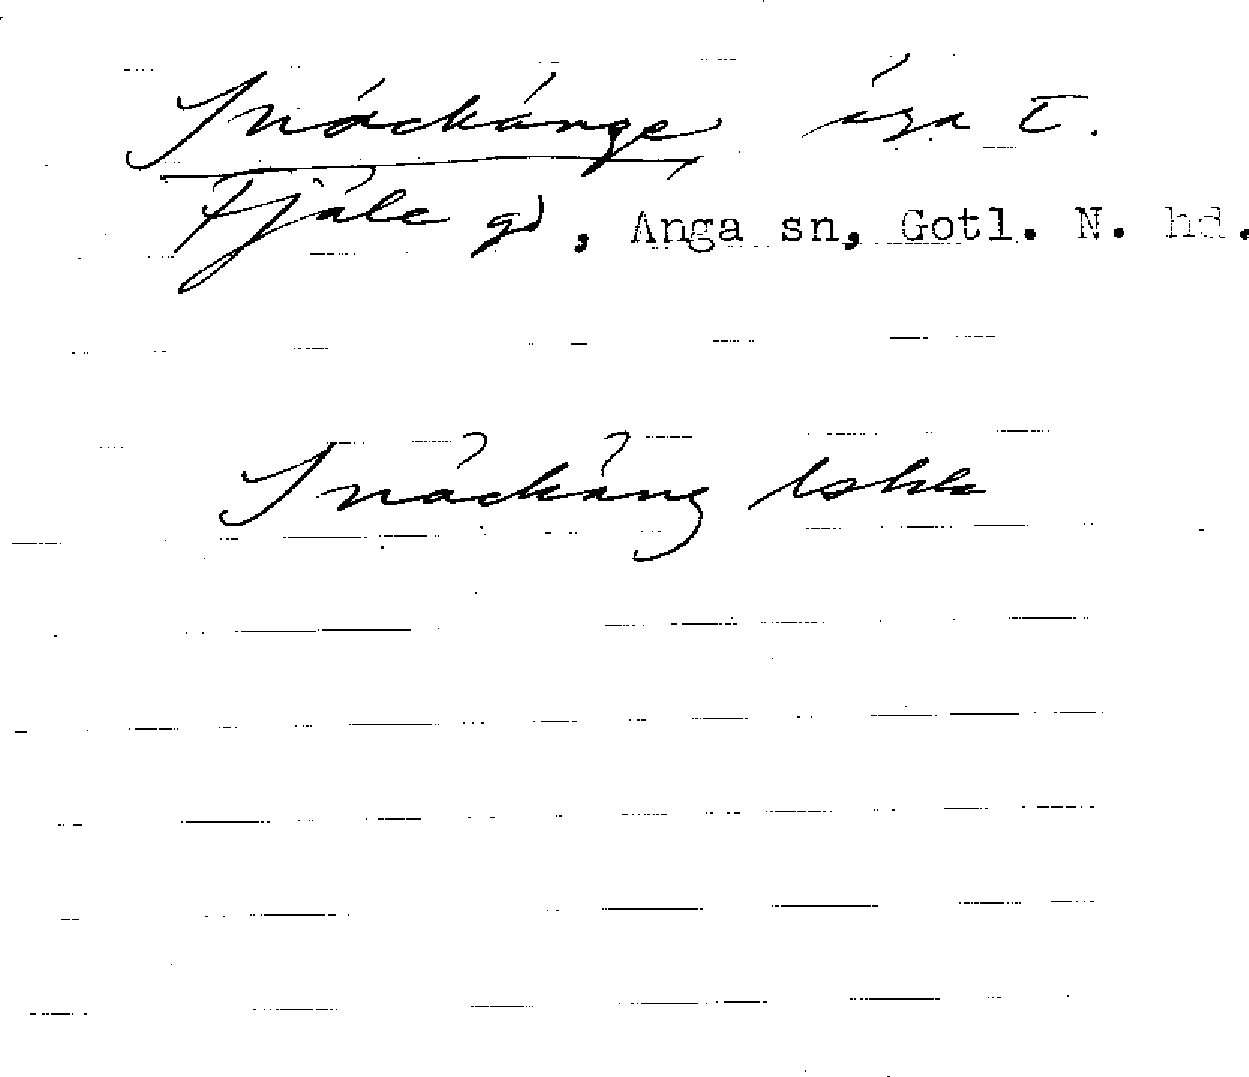 Snäckänge äga t.
Fjäle gd, Anga sn, Gotl. N. hd.
Snäckäng